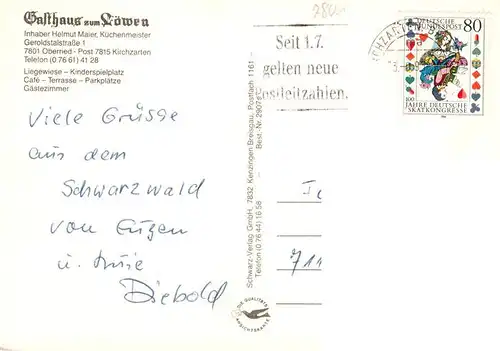 Gasthaus zum Löwen
Inhaber Helmut Maier, Küchenmeister
Geroldstalstraße 1
7801 Oberried - Post 7815 Kirchzarten
Telefon (0 76 61) 41 28
Liegewiese – Kinderspielplatz
Café – Terrasse – Parkplätze
Gästezimmer
Viele Grüsse
aus dem
Schwarzwald
von Eugen
u.
Diebold
Schwarz-Verlag GmbH, 7832 Kenzingen Breisgau, Postfach 1161 -
Telefon (0 76 44) 16 58
Best.-Nr. 2907
DIE QUALITÄTS
ANSICHTSKARTE
Seit 1.7.
gelten neue
Postleitzahlen.
DEUTSCHE
BUNDESPOST
80
100
JAHRE DEUTSCHE
SKATKONGRESSE